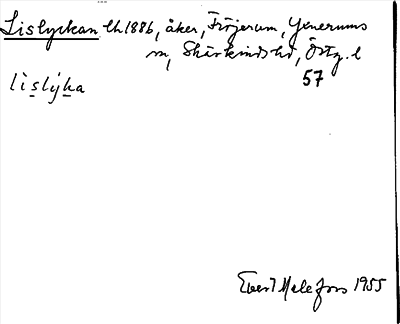 Lislyckan Lh 1886, åker, Fröjerum, Yxnerums
sn, Skärkinds hd, Östg. l
57
lìslýka
Evert Melefors 1955